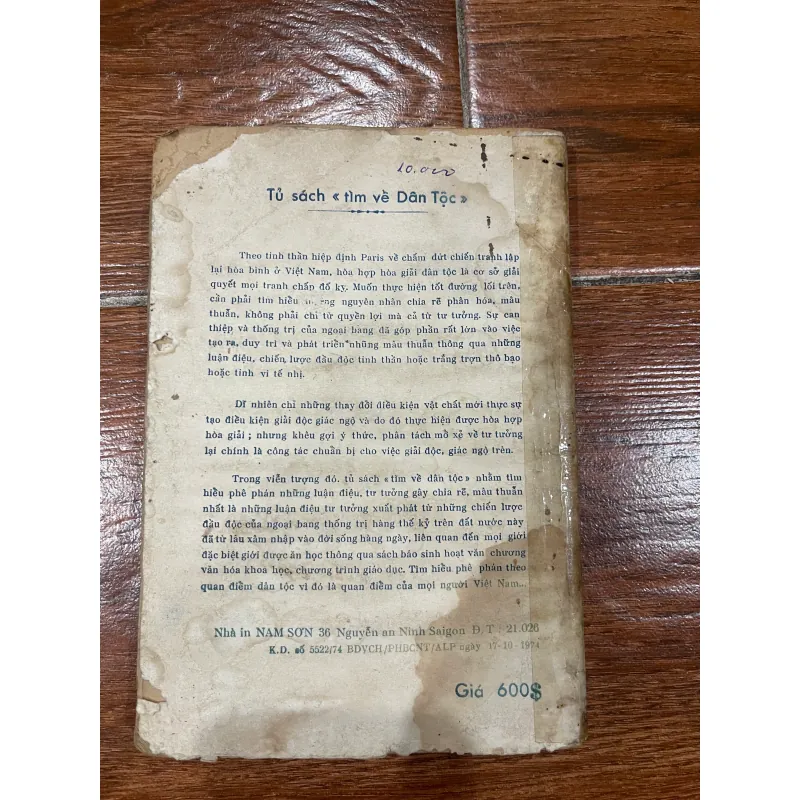 10.000
Tủ sách « tìm về Dân Tộc »
Theo tinh thần hiệp định Paris về chấm dứt chiến tranh lập
lại hòa bình ở Việt Nam, hòa hợp hòa giải dân tộc là cơ sở giải
quyết mọi tranh chấp đố kỵ. Muốn thực hiện tốt đường lối trên,
cần phải tìm hiểu nguyên nhân chia rẽ phân hóa, mâu
thuẫn, không phải chỉ từ quyền lợi mà cả từ tư tưởng. Sự can
thiệp và thống trị của ngoại bang đã góp phần rất lớn vào việc
tạo ra, duy trì và phát triển những mâu thuẫn thông qua những
luận điệu, chiến lược đầu độc tinh thần hoặc trắng trợn thô bạo
hoặc tinh vi tế nhị.
Dĩ nhiên chỉ những thay đổi điều kiện vật chất mới thực sự
tạo điều kiện giải độc giác ngộ và do đó thực hiện được hòa hợp
hòa giải ; nhưng khêu gợi ý thức, phân tách mổ xẻ về tư tưởng
lại chính là công tác chuẩn bị cho việc giải độc, giác ngộ trên.
Trong viễn tượng đó, tủ sách «tìm về dân tộc» nhằm tìm
hiểu phê phán những luận điệu, tư tưởng gây chia rẽ, mâu thuẫn
nhất là những luận điệu tư tưởng xuất phát từ những chiến lược
đầu độc của ngoại bang thống trị hàng thế kỷ trên đất nước này
đã từ lâu xâm nhập vào đời sống hàng ngày, liên quan đến mọi giới
đặc biệt giới được ăn học thông qua sách báo sinh hoạt văn chương
văn hóa khoa học, chương trình giáo dục. Tìm hiểu phê phán theo
quan điểm dân tộc vì đó là quan điểm của mọi người Việt Nam...
Nhà in NAM SƠN 36 Nguyễn an Ninh Saigon Đ.T : 21.026
K.D. số 5522/74 BDVCH/PHBCNT/ALP ngày 17-10-1974
Giá 600$